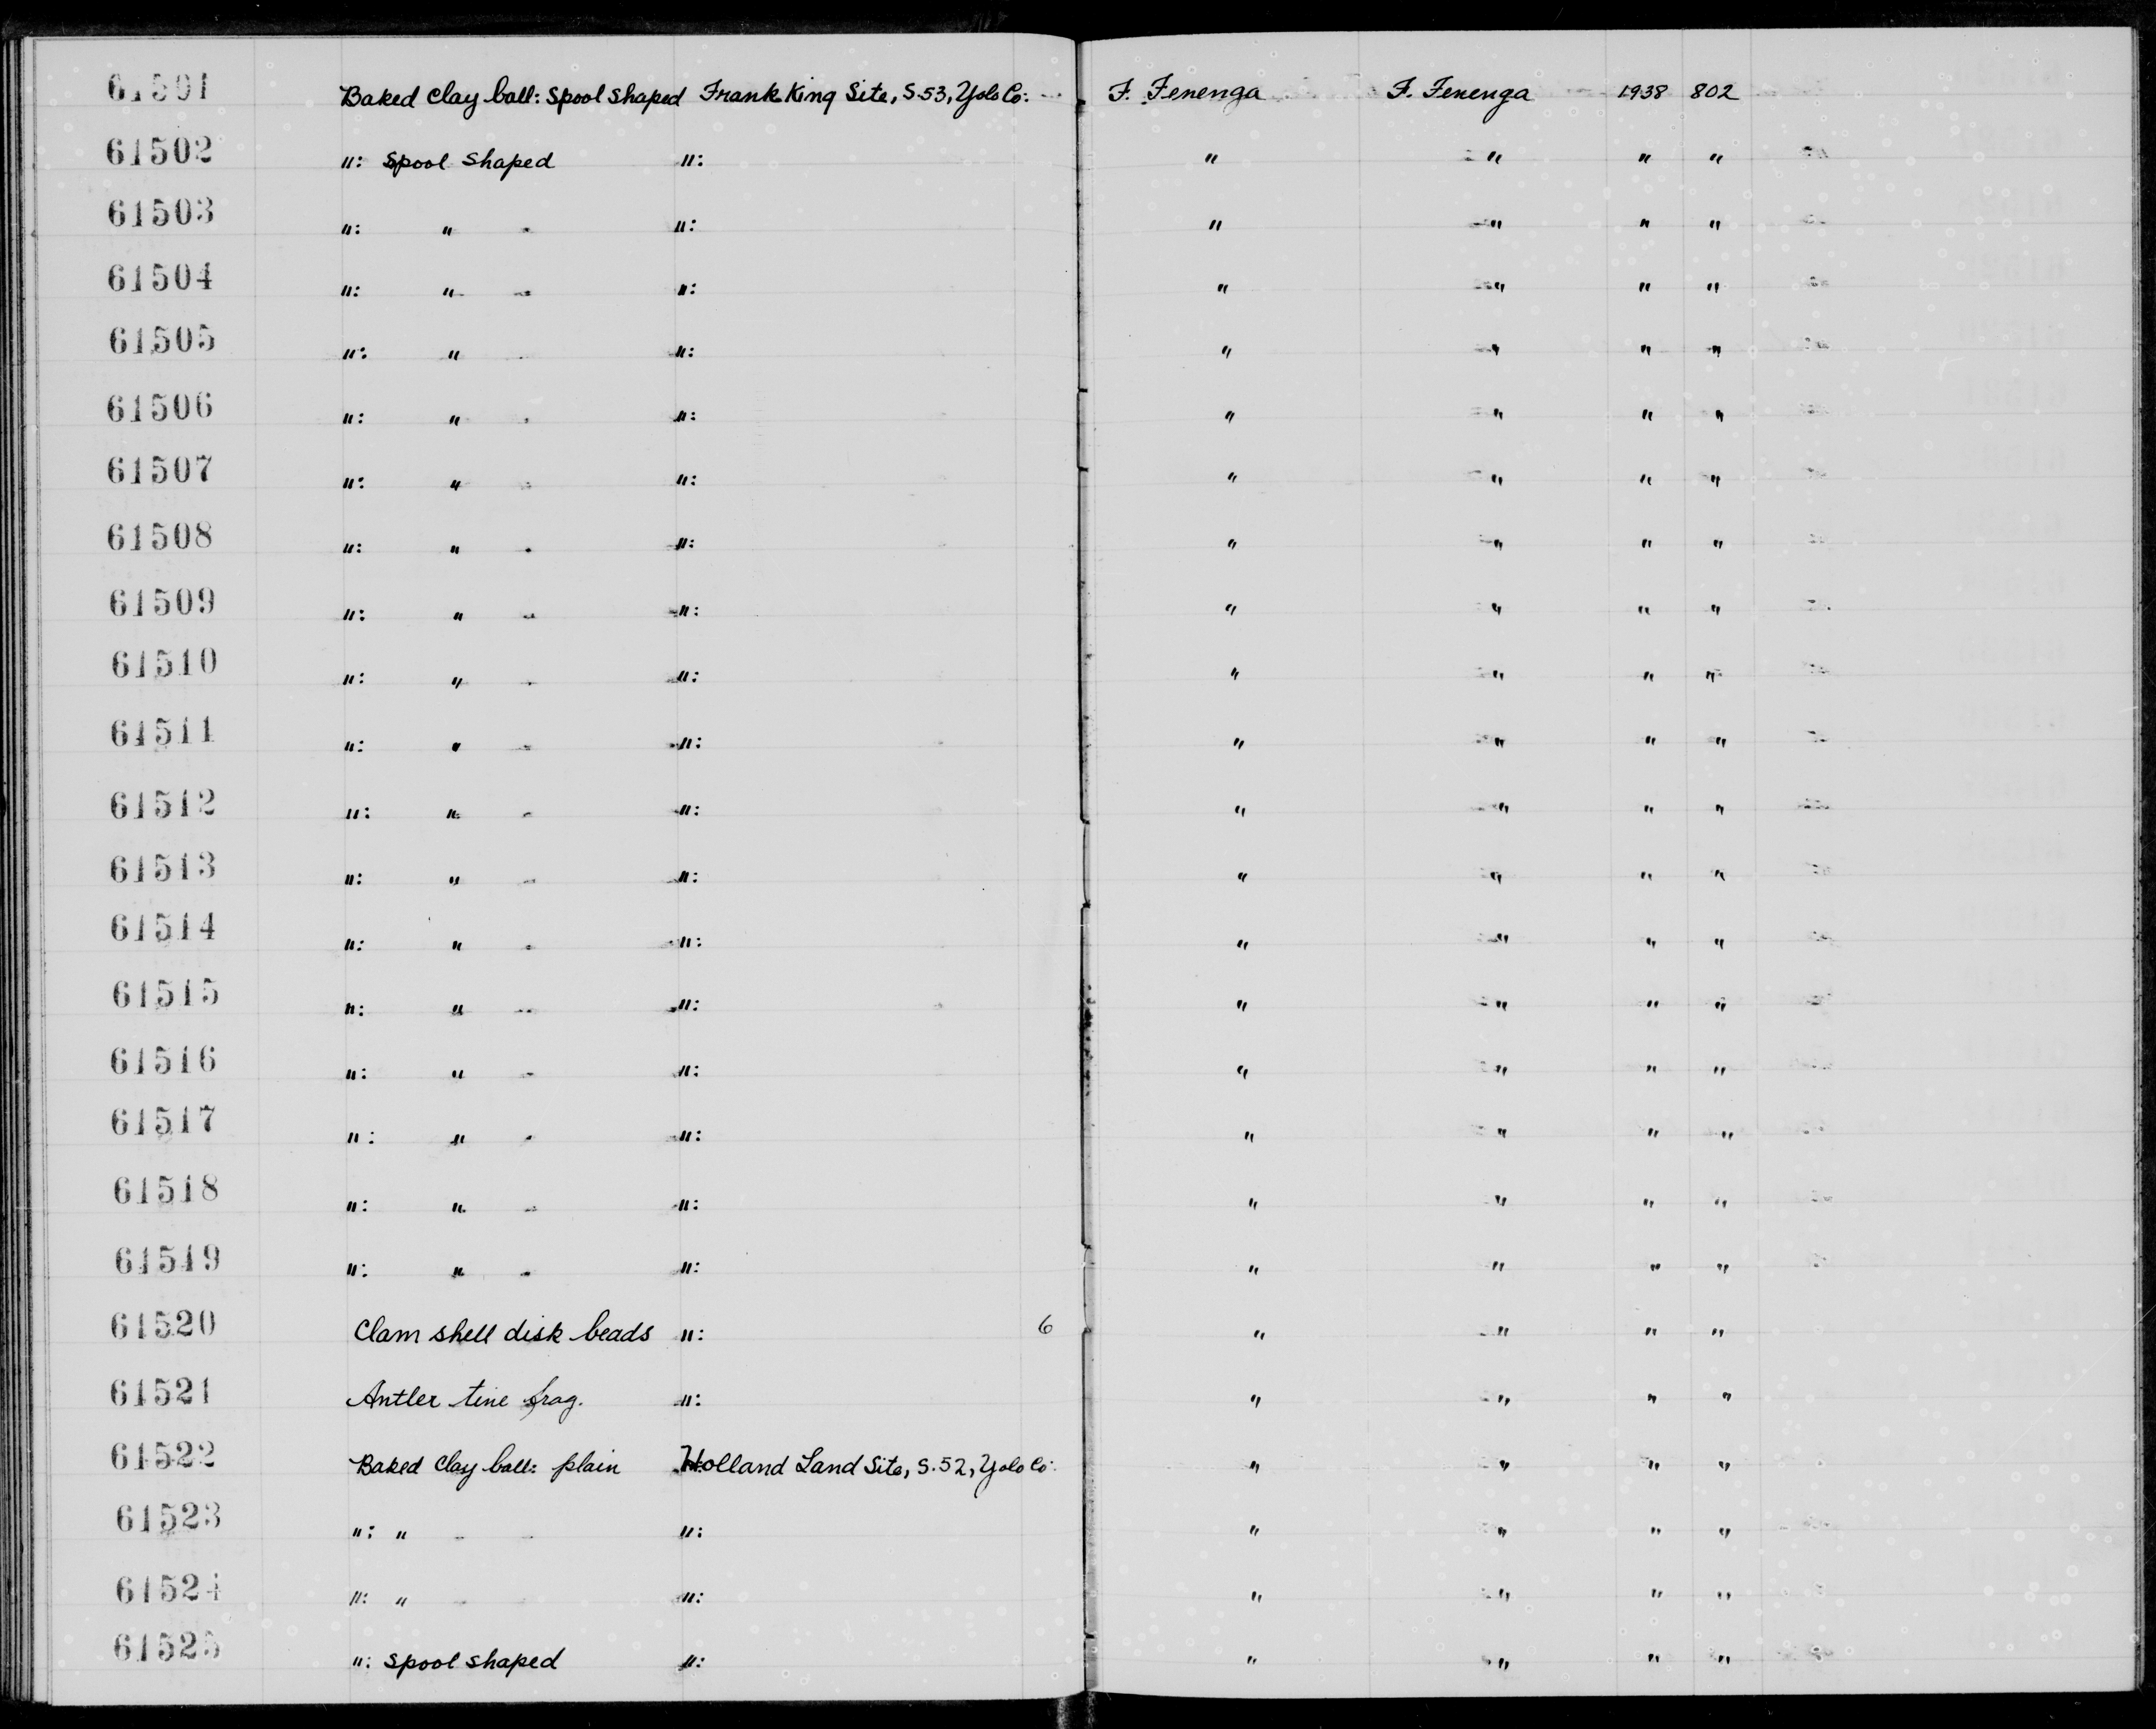 61501 Baked clay ball: spool shaped Frank King Site, S-53, Yolo Co: F. Fenenga F. Fenenga 1938 802
61502 ": spool shaped ": " " " "
61503 ": " ": " " " "
61504 ": " ": " " " "
61505 ": " ": " " " "
61506 ": " ": " " " "
61507 ": " ": " " " "
61508 ": " ": " " " "
61509 ": " ": " " " "
61510 ": " ": " " " "
61511 ": " ": " " " "
61512 ": " ": " " " "
61513 ": " ": " " " "
61514 ": " ": " " " "
61515 ": " ": " " " "
61516 ": " ": " " " "
61517 ": " ": " " " "
61518 ": " ": " " " "
61519 ": " ": " " " "
61520 Clam shell disk beads ": 6 " " " "
61521 Antler tine frag. ": " " " "
61522 Baked clay ball: plain Holland Land Site, S.52, Yolo Co: " " " "
61523 ": " ": " " " "
61524 ": " ": " " " "
61525 ": spool shaped ": " " " "